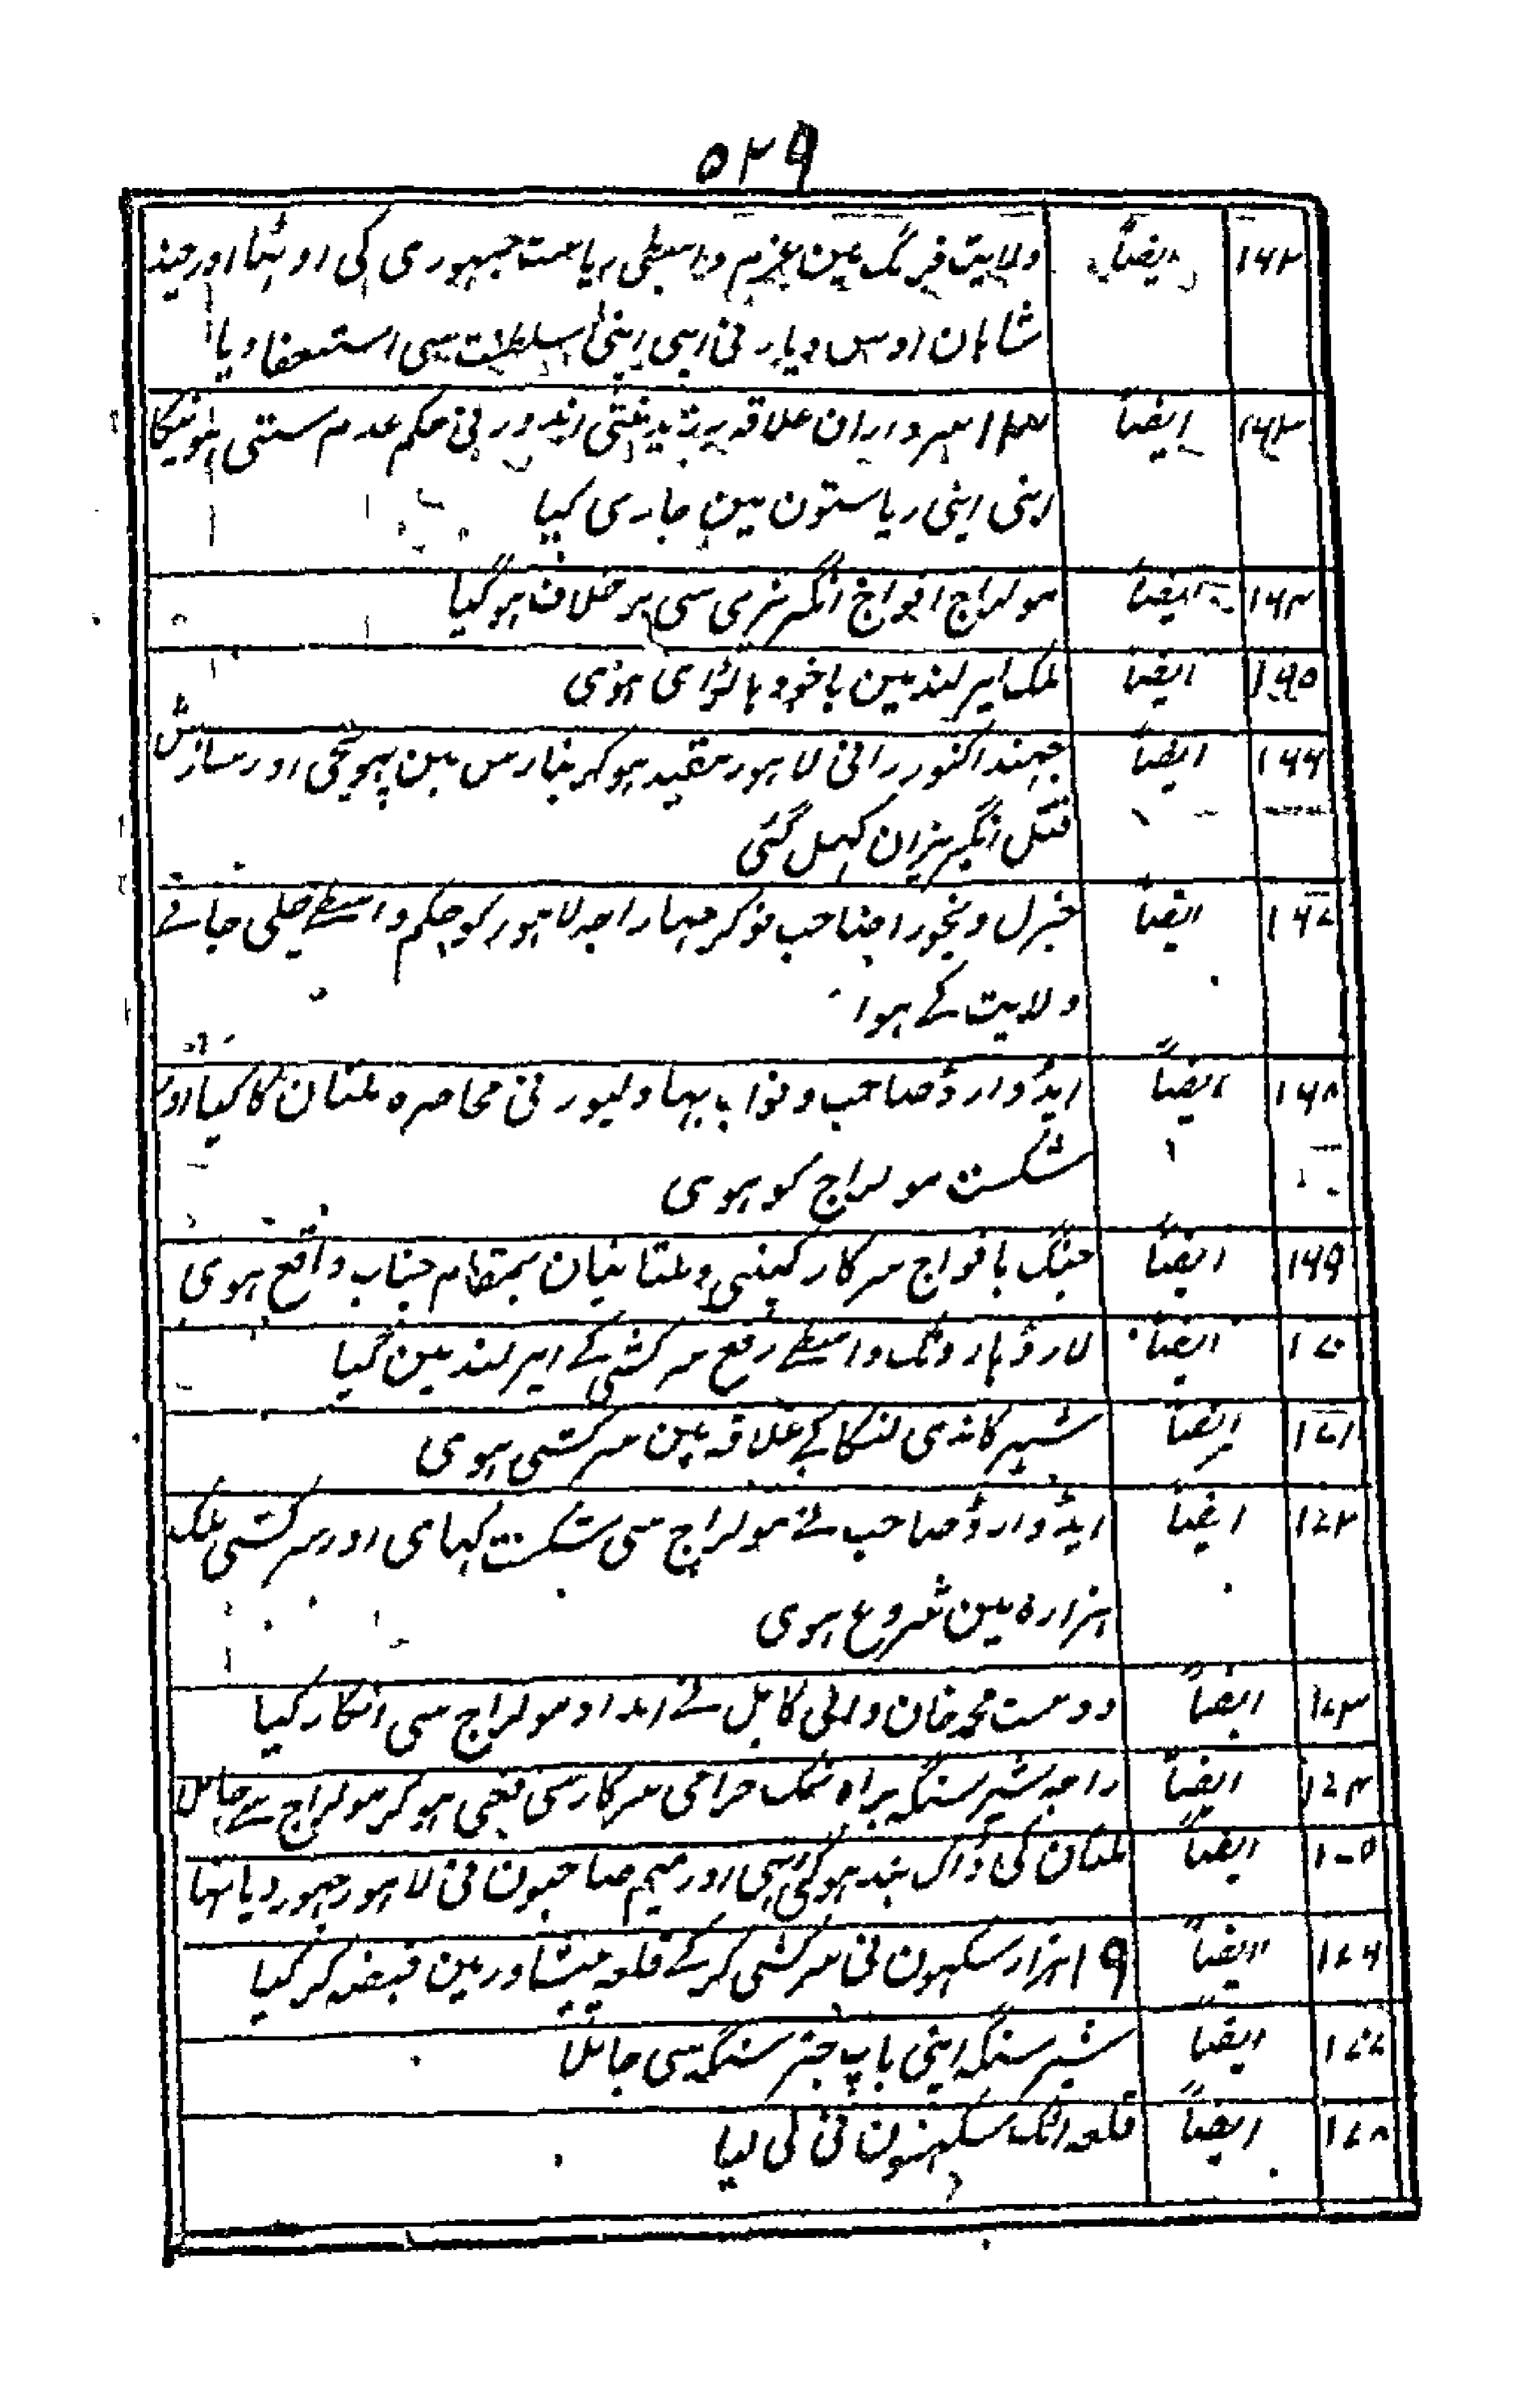 ۵۲۹
۱۶۲ ایضاً ولایت فرنگ مین عزم واسطی ریاست جمہوری کی اوٹھا اور چند
شاہان اوس دیار نی اپنی اپنی سلطنت سی استعفا دیا
۱۶۳ ایضاً سرداران علاقہ رزیڈنٹی اندور نی حکم عدم ستی ہونیکا
اپنی اپنی ریاستون مین جاری کیا
۱۶۴ ایضاً مولراج افواج انگریزی سی برخلاف ہوگیا
۱۶۵ ایضاً ملک ایرلند مین باخودہا لڑای ہوئی
۱۶۶ ایضاً جہندا کنور رانی لاہور مقید ہوکر بنارس مین پہونچی اور سازش
قتل انگریزان کہل گئی
۱۶۷ ایضاً جنرل ونچورا صاحب نوکر مہاراجہ لاہور کو حکم واسطے چلی جانے
ولایت کے ہوا
۱۶۸ ایضاً ایڈوارڈ صاحب و نواب بہاولپور نی محاصرہ ملتان کا کیا اور
شکست مولراج کو ہوی
۱۶۹ ایضاً جنگ بافواج سرکار کمپنی و ملتانیان بمقام چناب واقع ہوی
۱۷۰ ایضاً لارڈ ہاردنگ واسطے رفع سرکشی کے ایرلند مین گیا
۱۷۱ ایضاً شہر کاندی لنکا کے علاقہ مین سرکشی ہوی
۱۷۲ ایضاً ایڈوارڈ صاحب نے مولراج سی شکست کہای اور سرکشی ملک
ہزارہ مین شروع ہوی
۱۷۳ ایضاً دوست محمد خان والی کابل نے امداد مولراج سی انکار کیا
۱۷۴ ایضاً راجہ شیر سنگہ براہ نمک حرامی سرکار سی بغی ہوکر مولراج سے جا ملا
۱۷۵ ایضاً ملتان کی ڈاک بند ہوگئی تہی اور میم صاحبون نی لاہور چہور دیا تہا
۱۷۶ ایضاً ۱۹ ہزار سکہون نی سرکشی کرکے قلعہ پیشاور مین قبضہ کر لیا
۱۷۷ ایضاً شیر سنگہ اپنی باپ چتر سنگہ سی جا ملا
۱۷۸ ایضاً قلعہ اٹک سکہون نی لی لیا